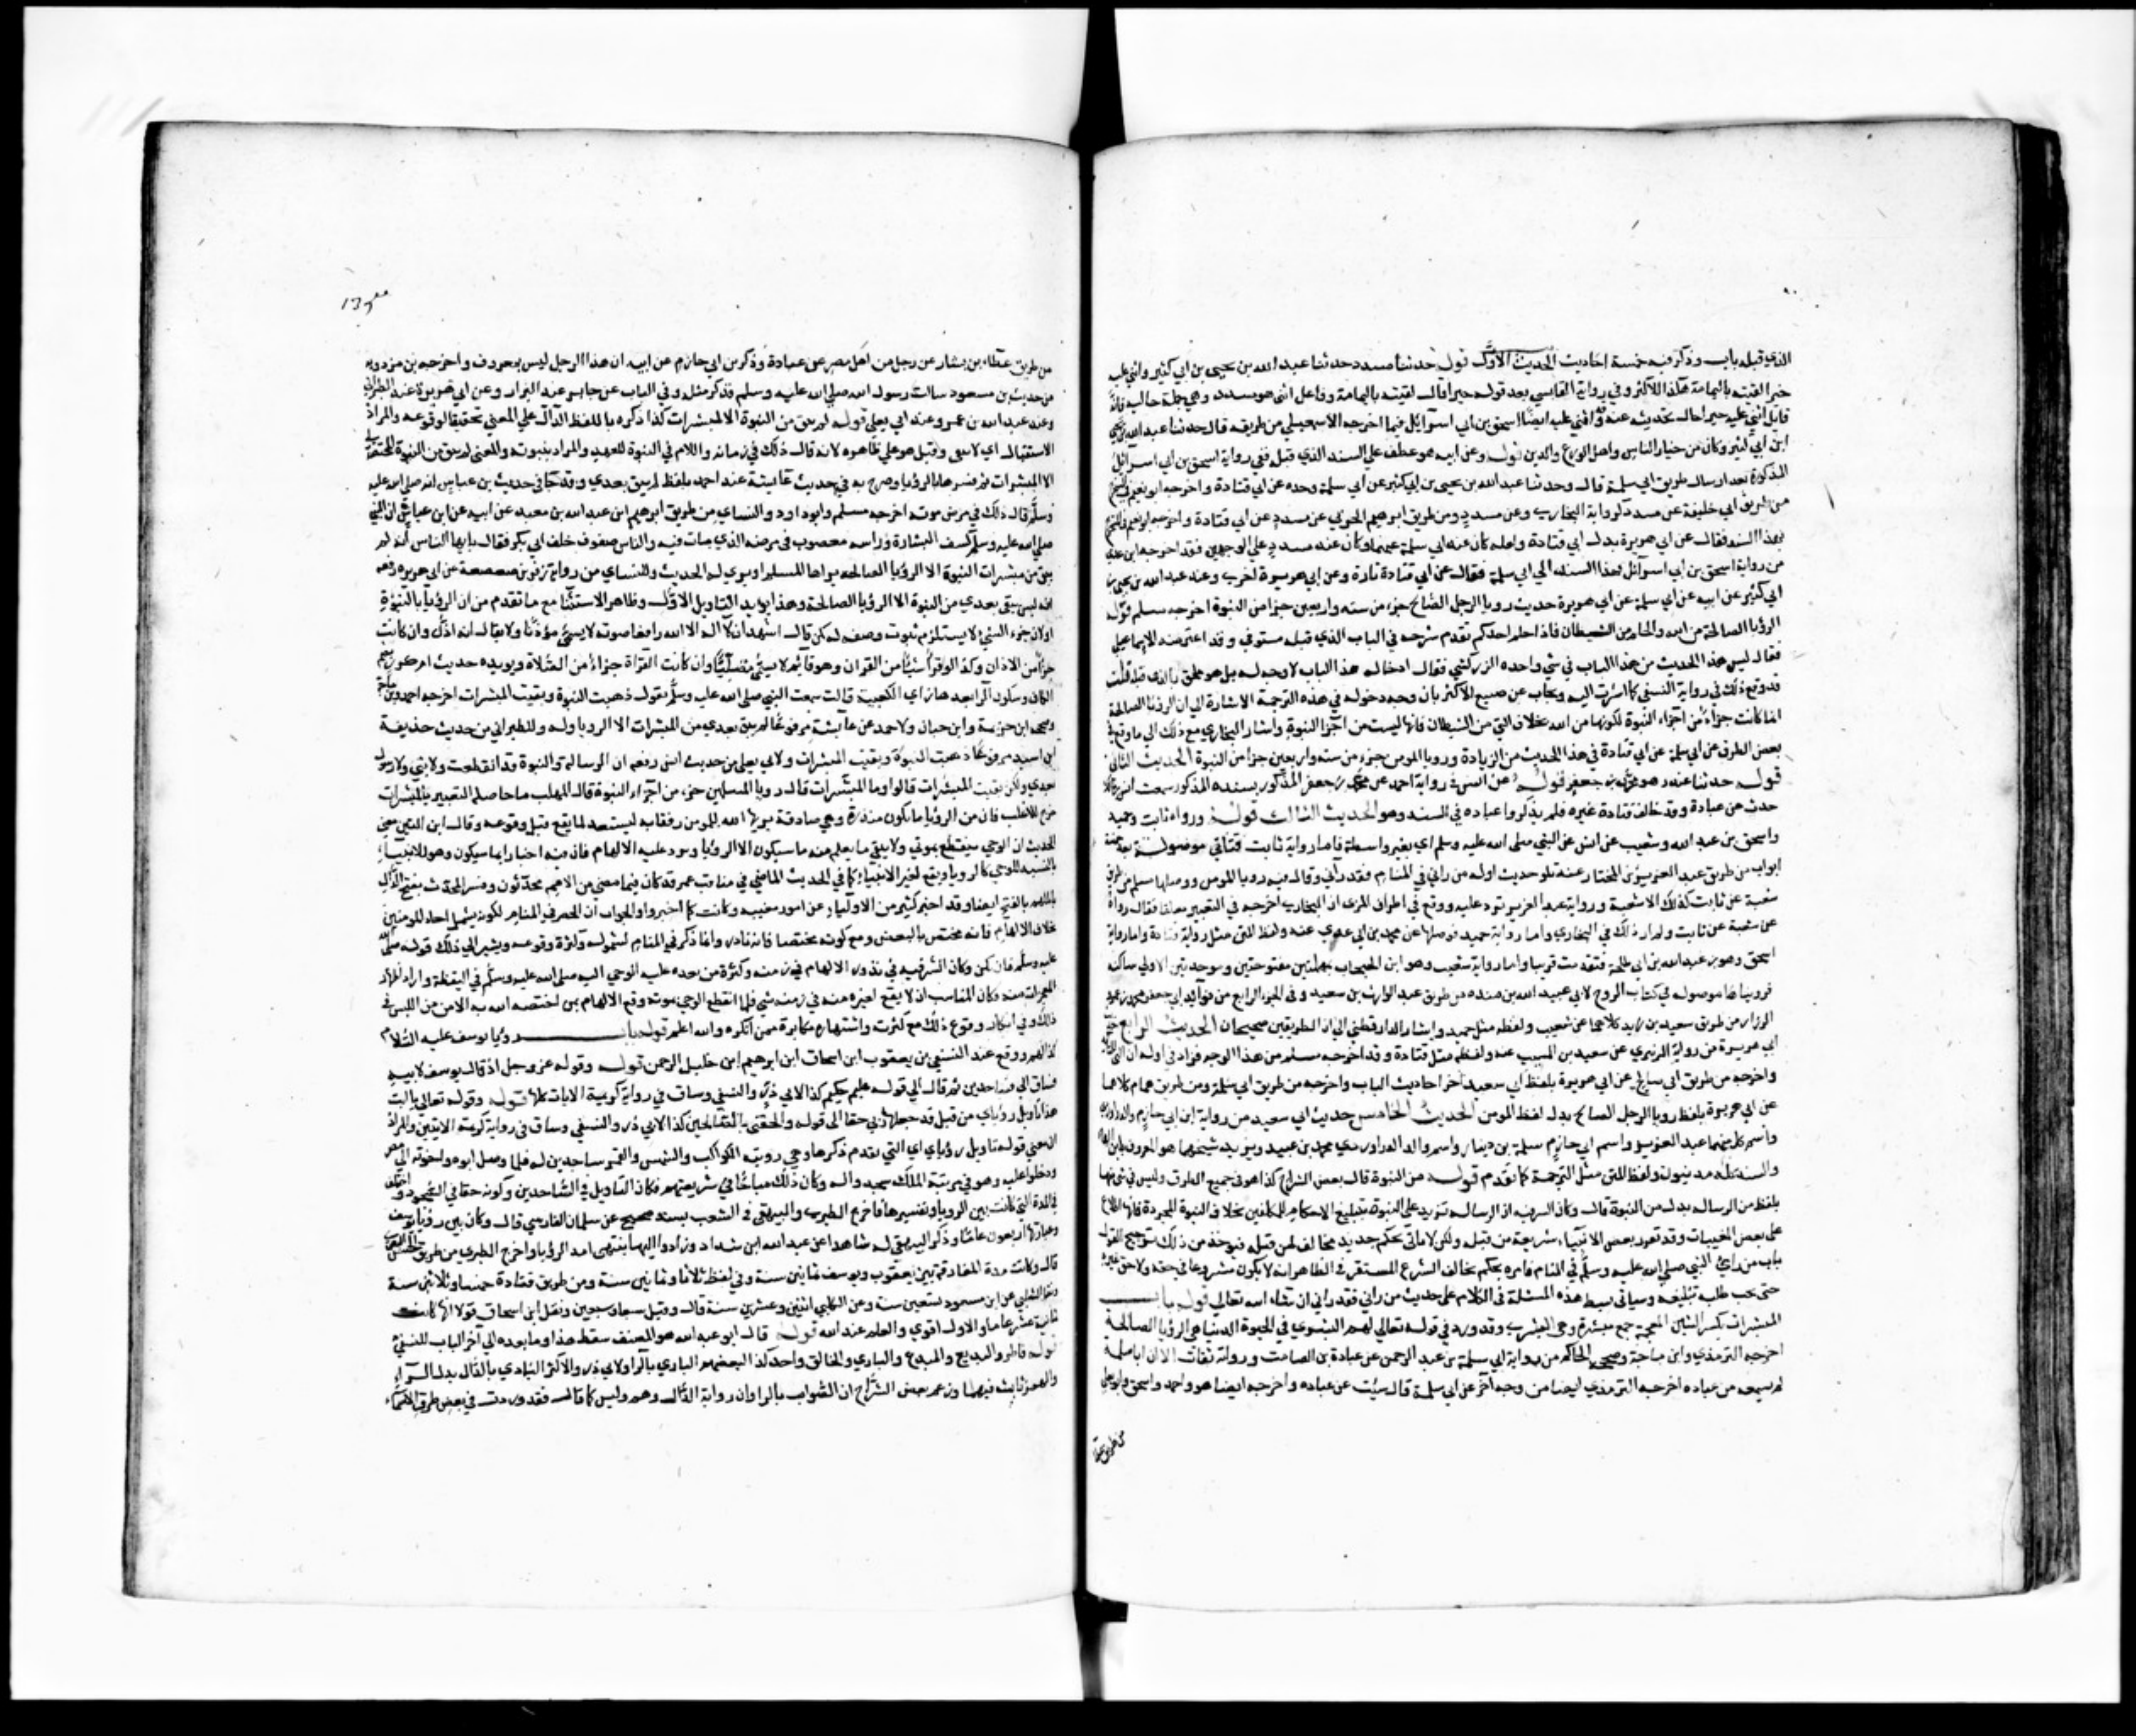 الذي قبله باب وذكر فيه خمسة احاديث الحديث الاول قوله حدثنا مسدد حدثنا عبد الله بن يحيى بن ابي كثير واثنى عليه
خيرا لقيته باليمامة هكذا للاكثر وفي رواية القابسي بعد قوله خيرا قال لقيته باليمامة وفاعل اثنى هو مسدد وهي جملة حالية كانه
قال اثنى عليه خيرا حال تحديثه عنه وقد اثنى عليه ايضا اسحق بن ابي اسرائيل فيما اخرجه الاسمعيلي من طريقه قال حدثنا عبد الله بن يحيى
ابن ابي كثير وكان من خيار الناس واهل الورع والدين قوله وعن ابيه هو عطف على السند الذي قبله ففي رواية اسحق بن ابي اسرائيل
المذكورة بعد ارسال طريق ابي سلمة قال وحدثنا عبد الله بن يحيى بن ابي كثير عن ابي سلمة وحده عن ابي قتادة واخرجه ابو نعيم في
من طريق ابي خليفة عن مسدد كرواية البخاري وعن مسدد ومن طريق ابرهيم الحربي عن مسدد عن ابي قتادة
بهذا السند فقال عن ابي هريرة بدل ابي قتادة ولعله كان عند ابي سلمة عنهما وكان عند مسدد على الوجهين فقد اخرجه ابن عدي
من رواية اسحق بن ابي اسرائيل بهذا السند الى ابي سلمة فقال عن ابي قتادة تارة وعن ابي هريرة اخرى وعند عبد الله بن يحيى بن
ابي كثير عن ابيه عن ابي سلمة عن ابي هريرة حديث رويا الرجل الصالح جزء من ستة واربعين جزا من النبوة اخرجه مسلم قوله
الرؤيا الصالحة من الله والحلم من الشيطان فاذا حلم احدكم تقدم شرحه في الباب الذي قبله مستوفى وقد اعترضه الاسماعيلي
فقال ليس هذا الحديث من هذا الباب في شي واخذه الزركشي فقال ادخاله هذا الباب لا وجه له بل هو ملحق بالذي قبله قلت
قد وقع ذلك في رواية النسفي كما اشرت اليه ويجاب عن صنيع الاكثر بان وجه دخوله في هذه الترجمة الاشارة الى ان الرؤيا الصالحة
انما كانت جزءا من اجزاء النبوة لكونها من الله بخلاف التي من الشيطان فانها ليست من اجزا النبوة واشار البخاري مع ذلك الى ما وقع في
بعض الطرق عن ابي سلمة عن ابي قتادة في هذا الحديث من الزيادة ورويا المومن جزء من ستة واربعين جزا من النبوة الحديث الثاني
قوله حدثنا غندر هو محمد بن جعفر قوله عن انس في رواية احمد عن محمد بن جعفر المذكور بسنده المذكور سمعت انس بن مالك
حدث عن عبادة وقد خالف قتادة غيره فلم يذكروا عبادة في السند وهو الحديث الثالث قوله ورواه ثابت وحميد
واسحق بن عبد الله وشعيب عن انس عن النبي صلى الله عليه وسلم اي بغير واسطة فاما رواية ثابت فتاتي موصولة بعد خمسة
ابواب من طريق عبد العزيز بن المختار عنه تلو حديث اوله من راني في المنام فقد رآني وقال فيه رويا المومن ووصلها مسلم من طريق
شعبة عن ثابت كذلك الا شعبة ورواية عبد العزيز ترد عليه ووقع في اطراف المزي ان البخاري اخرجه في التعبير معلقا فقال رواه
عن شعبة عن ثابت ولم ار ذلك في البخاري واما رواية حميد فوصلها عن محمد بن ابي عدي عنه ولفظ المتن مثل رواية قتادة واما رواية
اسحق وهو بن عبد الله بن ابي طلحة فتقدمت قريبا واما رواية شعيب وهو ابن الحبحاب بمهملتين مفتوحتين وموحدتين الاولى ساكنة
فرويناها موصولة في كتاب الروح لابي عبيد الله بن منده من طريق عبد الوارث بن سعيد وفي الجزء الرابع من فوائد ابي جعفر محمد بن عمرو
الرزاز من طريق سعيد بن زيد كلاهما عن شعيب ولفظه مثل حميد واشار الدارقطني الى ان الطريقين صحيحان الحديث الرابع
ابي هريرة من رواية الزهري عن سعيد بن المسيب عنه ولفظه مثل قتادة وقد اخرجه مسلم من هذا الوجه فزاد في اوله ان
واخرجه من طريق ابي صالح عن ابي هريرة بلفظ ابي سعيد آخر احاديث الباب واخرجه من طريق ابي سلمة ومن طريق همام كلاهما
عن ابي هريرة بلفظ رويا الرجل الصالح بدل لفظ المومن الحديث الخامس حديث ابي سعيد من رواية ابن ابي حازم والدراوردي
واسم كل منهما عبد العزيز واسم ابي حازم سلمة بن دينار واسم والد الدراوردي محمد بن عبيد ويزيد شيخهما هو المعروف بابن الهاد
والسند كله مدنيون ولفظ المتن مثل الترجمة كما تقدم قوله من النبوة قال بعض الشراح كذا هو في جميع الطرق وليس في شي منها
بلفظ من الرسالة بدل من النبوة قال وكان السر فيه ان الرسالة تزيد على النبوة بتبليغ الاحكام للمكلفين بخلاف النبوة المجردة فانها اطلاع
على بعض المغيبات وقد تقرر بعض الانبياء شريعة من قبله ولكن لا ياتي بحكم جديد مخالف لمن قبله فيؤخذ من ذلك ترجيح القول
بان من راي النبي صلى الله عليه وسلم في المنام فامره بحكم يخالف الشرع المستقر في الظاهر انه لا يكون مشروعا في حقه ولا حق غيره
حتى يجب عليه تبليغه وسياتي بسط هذه المسئلة في الكلام على حديث من راني فقد راني ان شاء الله تعالى قوله باب
المبشرات بكسر الشين المعجمة جمع مبشرة وهي البشرى وقد ورد في قوله تعالى لهم البشرى في الحيوة الدنيا هي الرؤيا الصالحة
اخرجه الترمذي وابن ماجة وصححه الحاكم من رواية ابي سلمة بن عبد الرحمن عن عبادة بن الصامت ورواته ثقات الا ان ابا سلمة
لم يسمعه من عبادة اخرجه الترمذي ايضا من وجه آخر عن ابي سلمة قال نبئت عن عبادة واخرجه ايضا هو واحمد واسحق وابو يعلى
من طريق عطا
135
من طريق عطاء بن يسار عن رجل من اهل مصر عن عبادة وذكر بن ابي حازم عن ابيه ان هذا الرجل ليس بمعروف واخرجه بن مردويه
من حديث بن مسعود سالت رسول الله صلى الله عليه وسلم فذكر مثله وفي الباب عن جابر عند البزار وعن ابي هريرة عند الطبراني
وعند عبد الله بن عمرو عند ابي يعلى قوله لم يبق من النبوة الا المبشرات كذا ذكره باللفظ الدال على المضي تحقيقا لوقوعه والمراد
الاستقبال اي لا يبقى وقيل هو على ظاهره لانه قال ذلك في زمانه واللام في النبوة للعهد والمراد نبوته والمعنى لم يبق من النبوة المختصة بي
الا المبشرات ثم فسرها بالرؤيا وصرح به في حديث عائشة عند احمد بلفظ لم يبق بعدي وقد جا في حديث بن عباس انه صلى الله عليه
وسلم قال ذلك في مرض موته اخرجه مسلم وابو داود والنساي من طريق ابرهيم ابن عبد الله بن معبد عن ابيه عن ابن عباس ان النبي
صلى الله عليه وسلم كشف الستارة وراسه معصوب في مرضه الذي مات فيه والناس صفوف خلف ابي بكر فقال يايها الناس انه لم
يبق من مبشرات النبوة الا الرؤيا الصالحة يراها المسلم او ترى له الحديث وللنساي من رواية زفر بن صعصعة عن ابي هريرة رفعه
انه ليس يبقى بعدي من النبوة الا الرؤيا الصالحة وهذا يؤيد التاويل الاول وظاهر الاستثنا مع ما تقدم من ان الرؤيا
اولا ن جزء الشي لا يستلزم ثبوت وصفه له كمن قال اشهد ان لا اله الا الله رافعا صوته لا يسمى مؤذنا ولا يقال انه اذن وان كانت
جزا من الاذان وكذا لو قرا شيئا من القران وهو قائم لا يسمى مصليا وان كانت القراة جزءا من الصلاة ويويده حديث ام كرز
الكاف وسكون الرا بعدها زاي الكعبية قالت سمعت النبي صلى الله عليه وسلم يقول ذهبت النبوة وبقيت المبشرات اخرجه احمد وبن ماجة
وصححه ابن خزيمة وابن حبان ولاحمد عن عائشة مرفوعا لم يبق بعدي من المبشرات الا الرويا وله وللطبراني من حديث حذيفة
ابن اسيد مرفوعا ذهبت النبوة وبقيت المبشرات ولابي يعلى من حديث انس رفعه ان الرسالة والنبوة قد انقطعت ولا نبي ولا رسول
بعدي ولكن بقيت المبشرات قالوا وما المبشرات قال رويا المسلمين جزء من اجزاء النبوة قال المهلب ما حاصله التعبير بالمبشرات
خرج للاغلب فان من الرؤيا ما يكون منذرة وهي صادقة يريها الله للمومن رفقا به ليستعد لما يقع قبل وقوعه وقال ابن التين معنى
الحديث ان الوحي ينقطع بموتي ولا يبقى ما يعلم منه ما سيكون الا الرؤيا ويرد عليه الالهام فان فيه اخبارا بما سيكون وهو للانبياء
بالنسبة للوحي كالرويا ويقع لغير الانبياء كما في الحديث الماضي في مناقب عمر قد كان فيما مضى من الامم محدثون وفسر المحدث بفتح الدال
بالملهم بالفتح ايضا وقد اخبر كثير من الاولياء عن امور مغيبة وكانت كما اخبروا والجواب ان الحصر في المنام لكونه يشمل احاد المومنين
بخلاف الالهام فانه مختص بالبعض ومع كونه مختصا فانه نادر وانما ذكر في المنام لشموله وكثرة وقوعه ويشير الى ذلك قوله صلى الله
عليه وسلم فان يكن وكان السر فيه في ندور الالهام في زمنه وكثرته من بعده غلبة الوحي اليه صلى الله عليه وسلم في اليقظة واراد اظهار
المعجزات منه وكان المناسب ان لا يقع لغيره منه في زمنه شي فلما انقطع الوحي بموته وقع الالهام لمن اختصه الله به للامن من اللبس في
ذلك وفي انكار وقوع ذلك مع كثرته واشتهاره مكابرة ممن انكره والله اعلم قوله باب رؤيا يوسف عليه السلام
كذا لهم ووقع عند النسفي بن يعقوب ابن اسحاق ابن ابرهيم ابن خليل الرحمن قوله وقوله عز وجل اذ قال يوسف لابيه
فساق الى ساجدين ثم قال الى قوله عليم حكيم كذا لابي ذر والنسفي وساق في رواية كريمة الايات كلها قوله وقوله تعالى يا ابت
هذا تاويل رؤياي من قبل قد جعلها ربي حقا الى قوله والحقني بالصالحين كذا لابي ذر والنسفي وساق في رواية كريمة الايتين والمراد
ان معنى قوله تاويل رؤياي اي التي تقدم ذكرها وهي روية الكواكب والشمس والقمر ساجدين له فلما وصل ابوه واخوته الى مصر
ودخلوا عليه وهو في مرتبة الملك سجدوا له وكان ذلك مباحا في شريعتهم فكان التاويل في الساجدين وكونه حقا في السجود واختلف
في المدة التي كانت بين الرويا وتفسيرها فاخرج الطبري والبيهقي في الشعب بسند صحيح عن سلمان الفارسي قال وكان بين رؤيا يوسف
وعبارتها اربعون عاما وذكر البيهقي له شاهدا عن عبد الله ابن شداد وزاد واليها ينتهي امد الرؤيا واخرج الطبري من طريق الحسن البصري
قال وكانت مدة المفارقة بين يعقوب ويوسف ثمانين سنة وفي لفظ ثلاثا وثمانين سنة ومن طريق قتادة خمسا وثلاثين سنة
ونقل الثعلبي عن ابن مسعود تسعين سنة وعن الكلبي اثنتين وعشرين سنة قال وقيل سبعا وسبعين ونقل ابن اسحاق قولا انها كانت
ثمانية عشر عاما والاول اقوى والعلم عند الله قوله قال ابو عبد الله هو المصنف سقط هذا وما بعده الى آخر الباب للنسفي
قوله فاطر والبديع والمبدع والباري والخالق واحد كذا لبعضهم الباري بالرا ولابي ذر والاكثر البادي بالدال بدل الراء
والهمز ثابت فيهما وزعم بعض الشراح ان الصواب بالرا وان رواية الدال وهم وليس كما قال فقد وردت في بعض طرق الاسماء